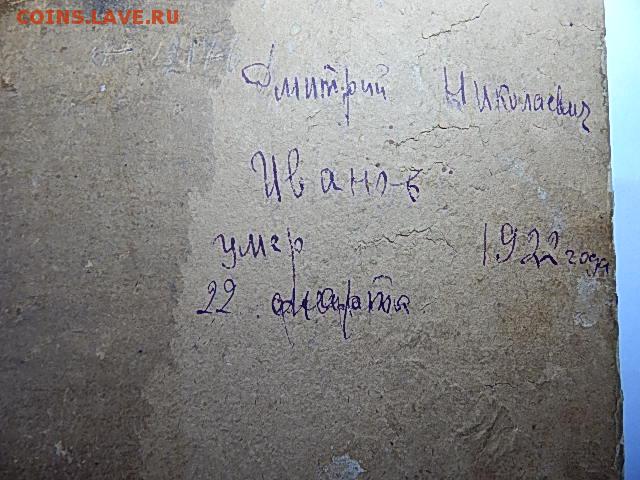 COINS.LAVE.RU
Дмитрий Николаевич
Иванов
умер 1922 года
22 марта